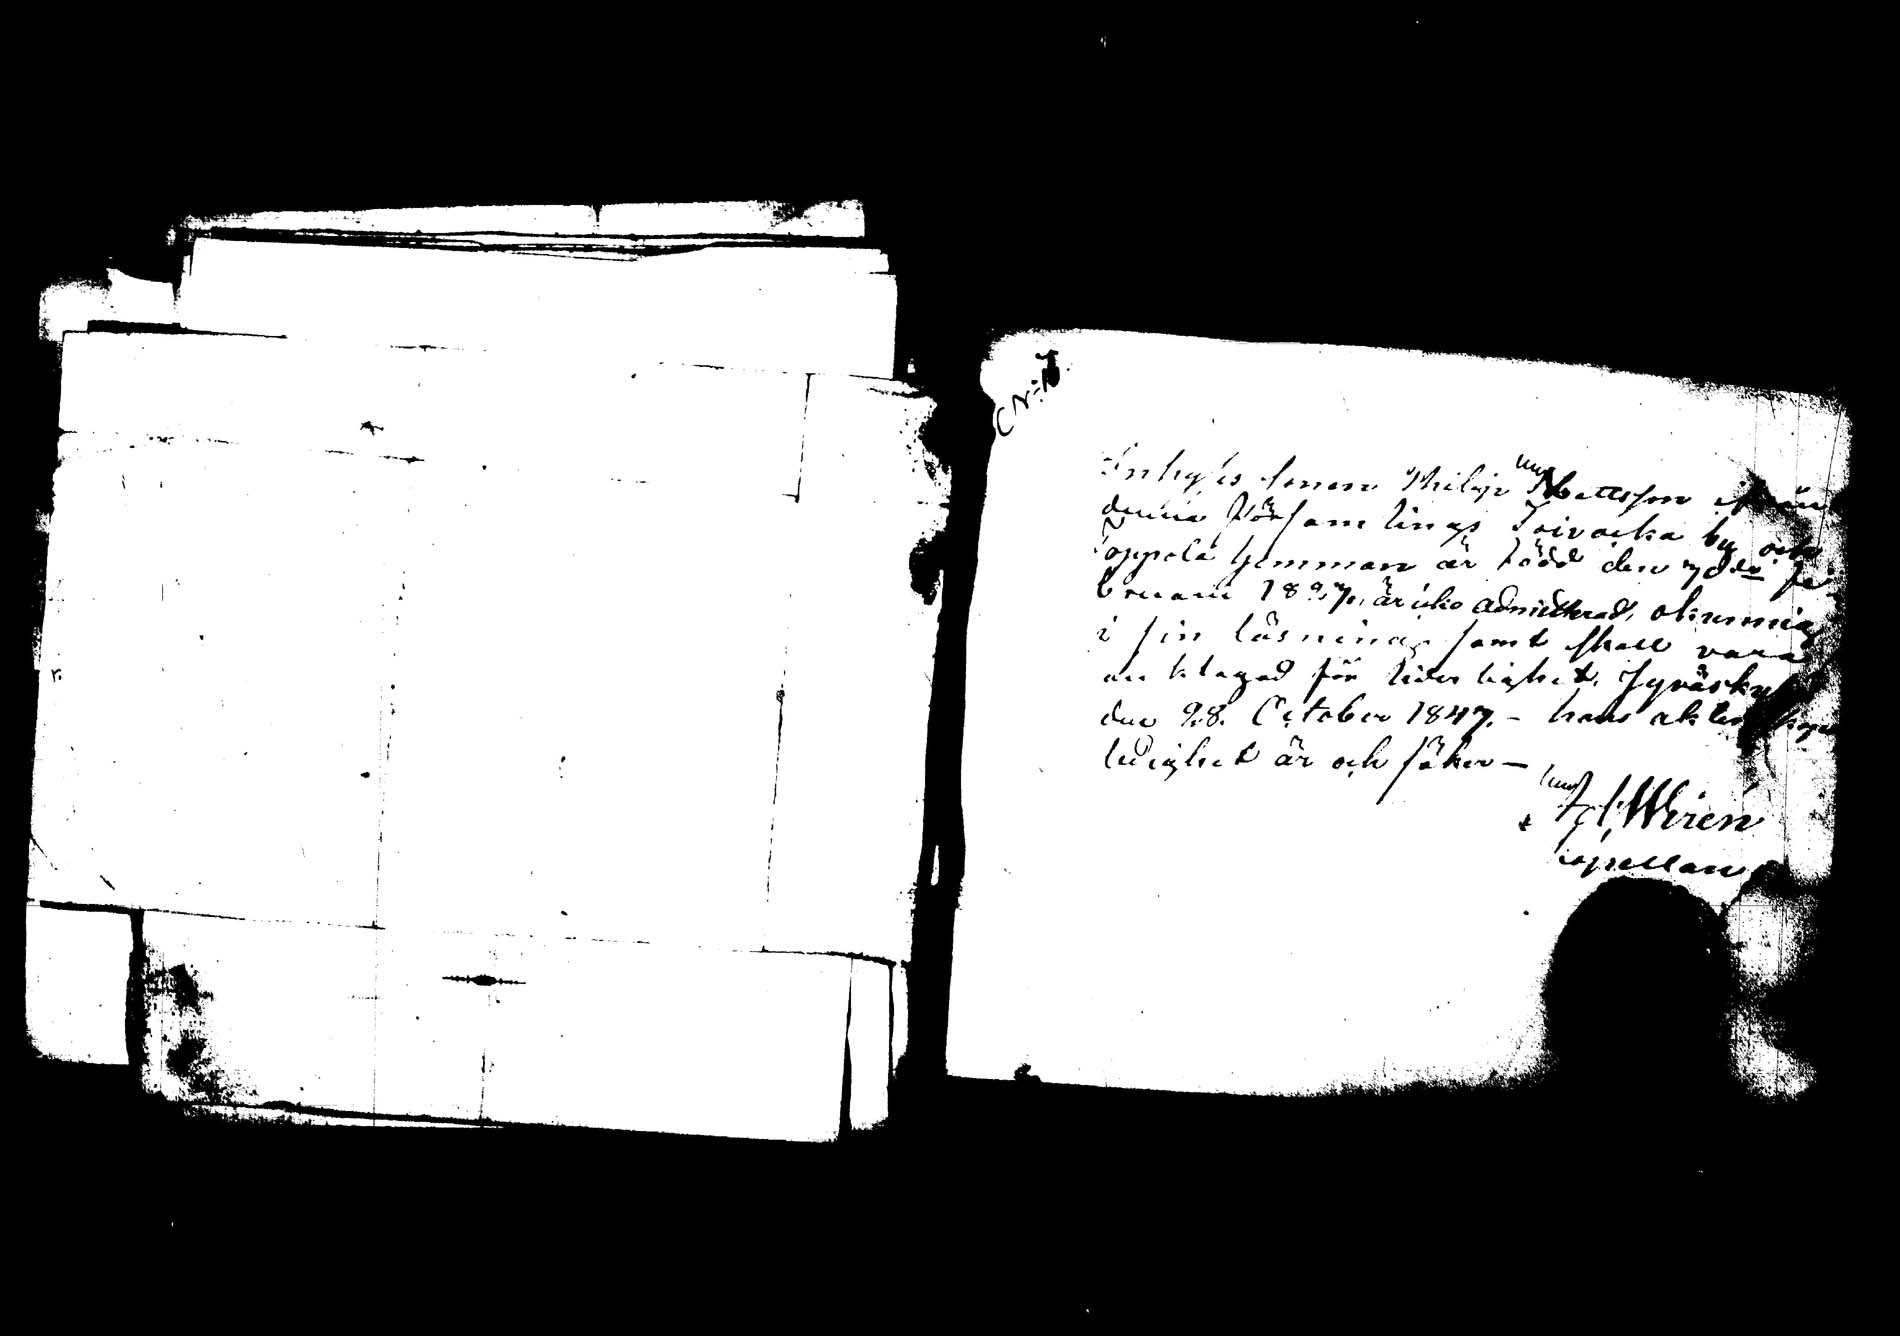 Inhyses sonen Philip Mattsson ifrån
denna Församlings Toivacka by och
Toppola hemman är född den 7de Fe-
bruarii 1827, är icke admitterad, okunnig
i sin läsning samt skall vara
anklagad för liderlighet. Jyväskylä
den 28. October 1847. – hans äkten
ledighet är och säker –
Wirén
Capellan